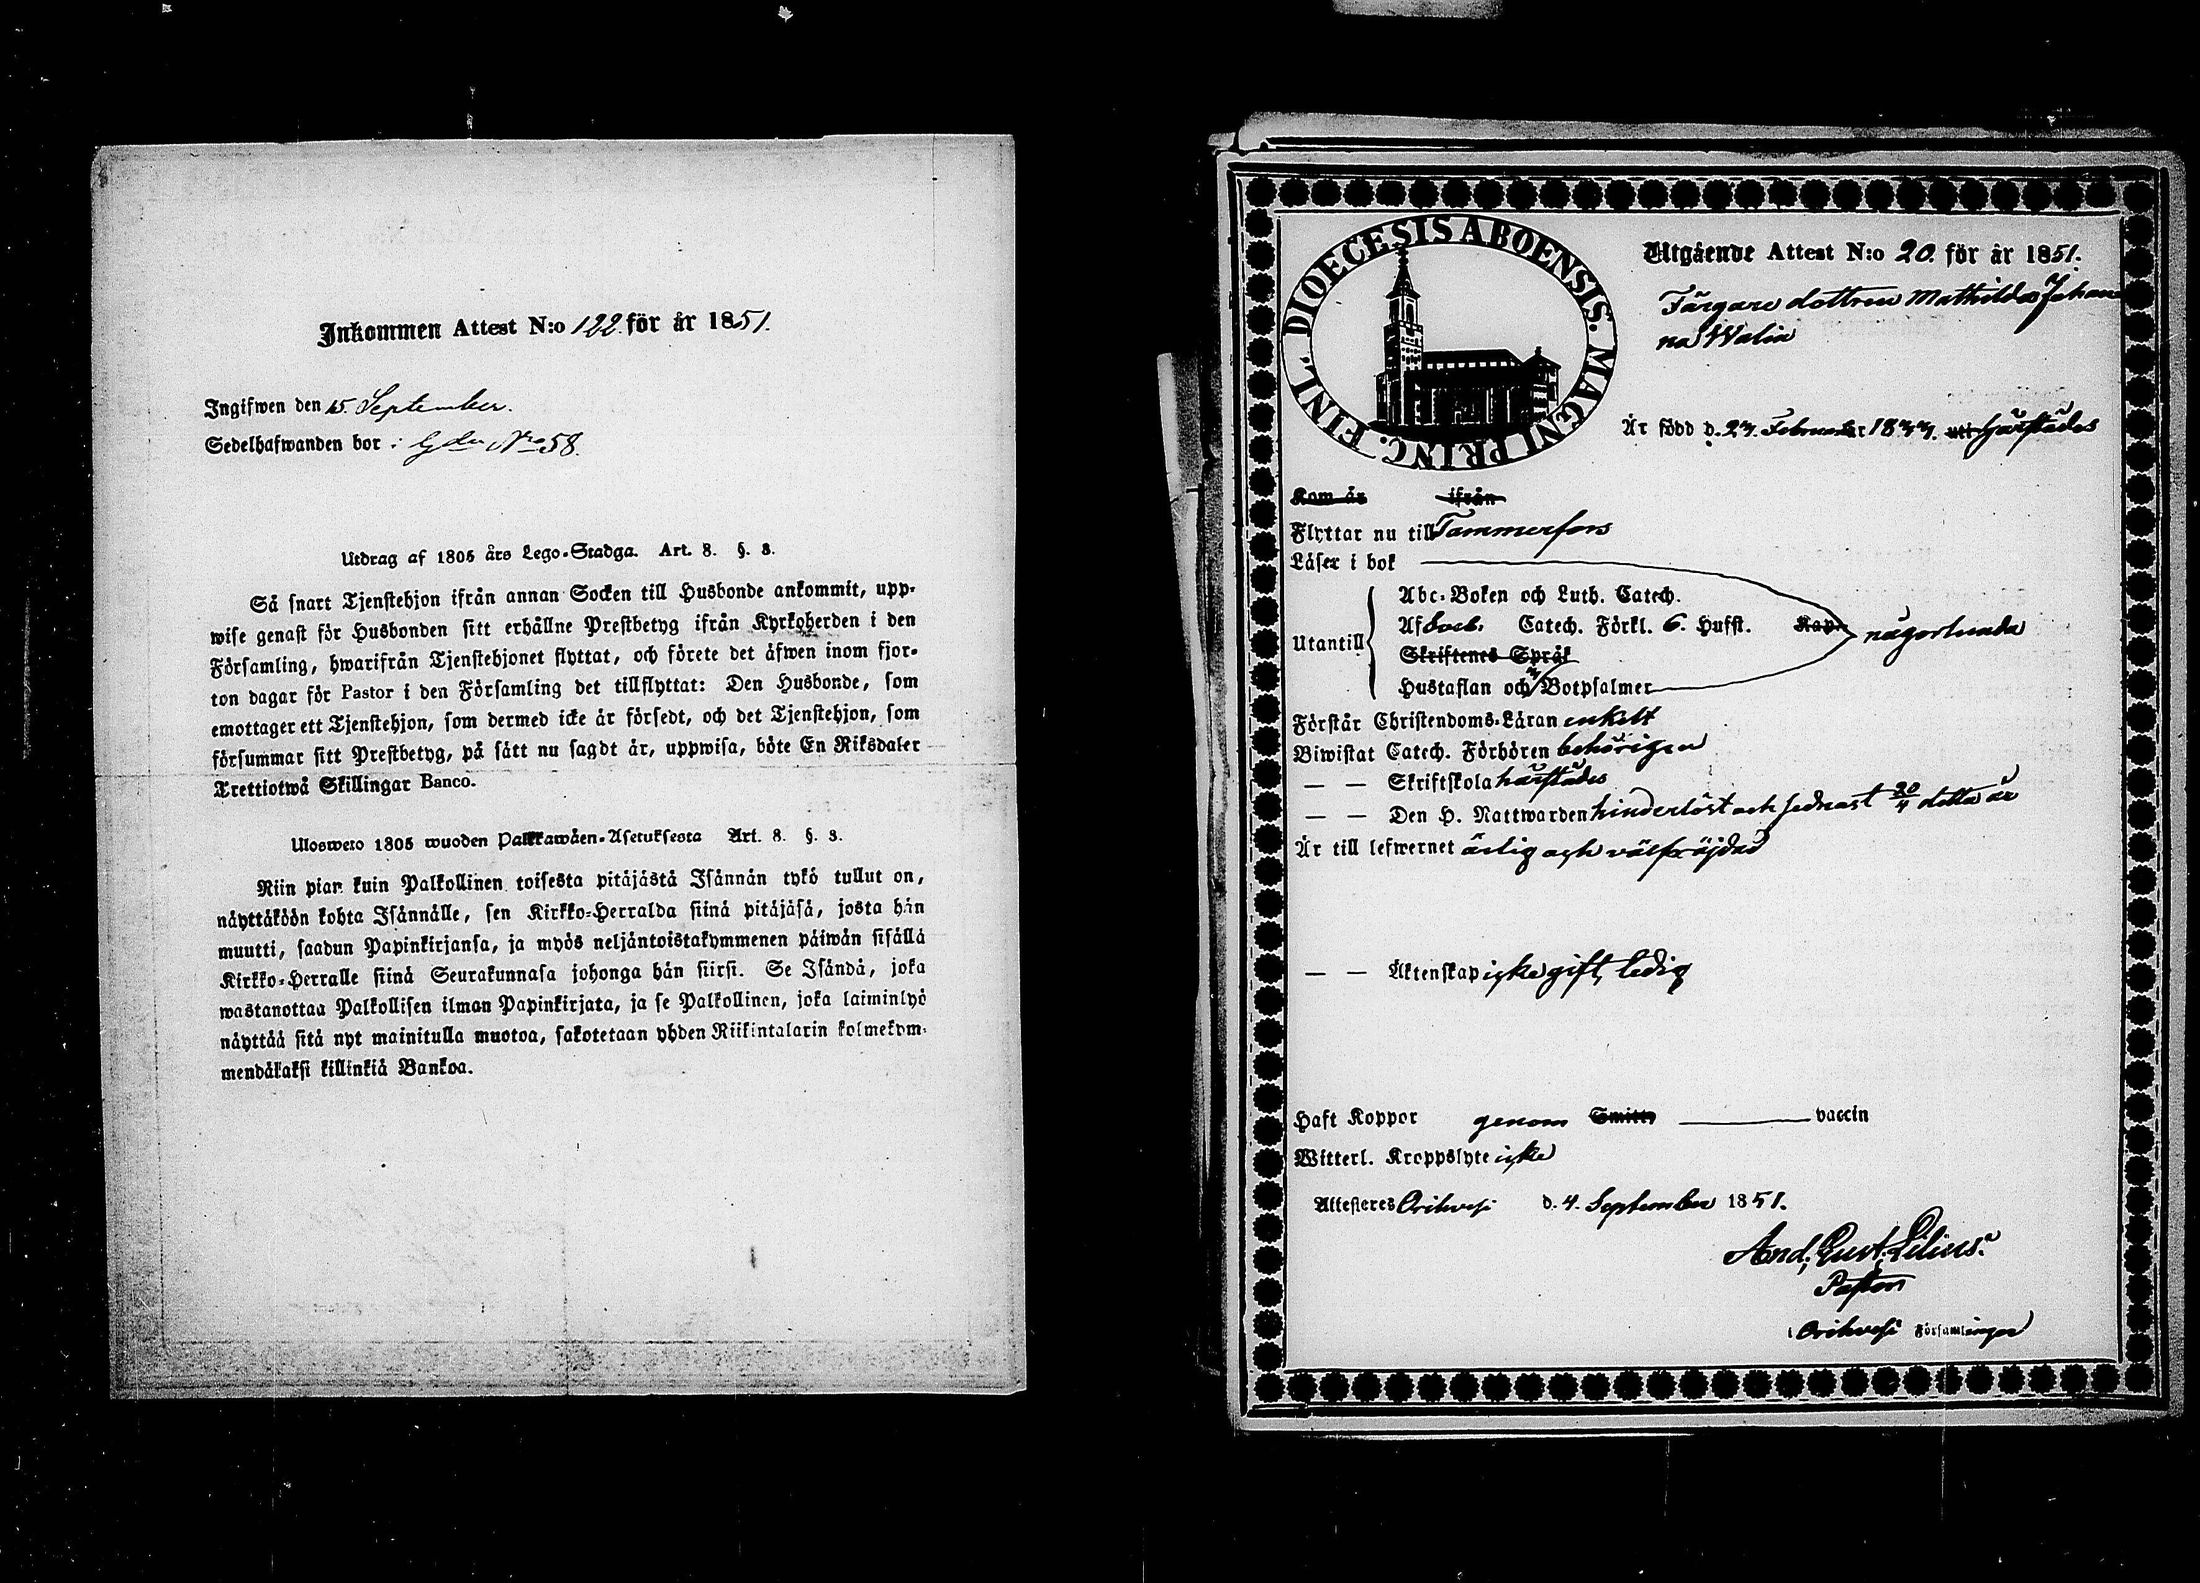 Inkommen Attest N:o 122. för år 1851.
Ingifwen den 15. September.
Sedelhafwanden bor i Gdn No 58.
Utdrag af 1805 års Lego-Stadga. Art. 8. §. 3.
Så snart Tjenstehjon ifrån annan Socken till Husbonde ankommit, upp-
wise genast för Husbonden sitt erhållne Prestbetyg ifrån Kyrkoherden i den
Församling, hwarifrån Tjenstehjonet flyttat, och förete det äfwen inom fjor-
ton dagar för Pastor i den Församling det tillflyttat: Den Husbonde, som
emottager ett Tjenstehjon, som dermed icke är försedt, och det Tjenstehjon, som
försummar sitt Prestbetyg, på sätt nu sagdt är, uppwisa, böte En Riksdaler
Trettiotwå Skillingar Banco.
Ulosweto 1805 wuoden Palkkawäen-Asetuksesta Art. 8. §. 3.
Niin pian kuin Palkollinen toisesta pitäjästä Isännän tykö tullut on,
näyttäköön kohta Isännälle, sen Kirkko-Herralda siinä pitäjäsä, josta hän
muutti, saadun Papinkirjansa, ja myös neljäntoistakymmenen päiwän sisällä
Kirkko-Herralle siinä Seurakunnasa johonga hän siirsi. Se Isändä, joka
wastanottaa Palkollisen ilman Papinkirjata, ja se Palkollinen, joka laiminlyö
näyttää sitä nyt mainitulla muotoa, sakotetaan yhden Riikintalarin kolmekym-
mendäkaksi killinkiä Bankoa.
DIOECESIS ABOENSIS. MAGNI PRINC. FINL.
Utgående Attest N:o 20. för år 1851.
Färgare dottren Mathilda Johan
na Walin
Är född d. 23. Februar 1833. uti härstädes
Kom år ifrån
Flyttar nu till Tammerfors
Läser i bok
Abc-Boken och Luth. Catech.
Utantill Af Catech. Förkl. 6. Hufst. Kap. någorlunda
Skriftenes Språk
Hustaflan och Botpsalmer
Förstår Christendoms-Läran enkelt
Biwistat Catech. Förhören behörigen
— — Skriftskola härstädes
— — Den H. Nattwarden hinderlöst och sednast 20/4 detta år
Är till lefwernet ärlig och välfräjdad
— — Äktenskap icke gift, ledig
Haft Koppor genom Smitta vaccin
Witterl. Kroppslyte icke
Attesteres Orihvesi d. 4. September 1851.
And. Gust. Lilius.
Pastor
i Orihvesi Församlingen